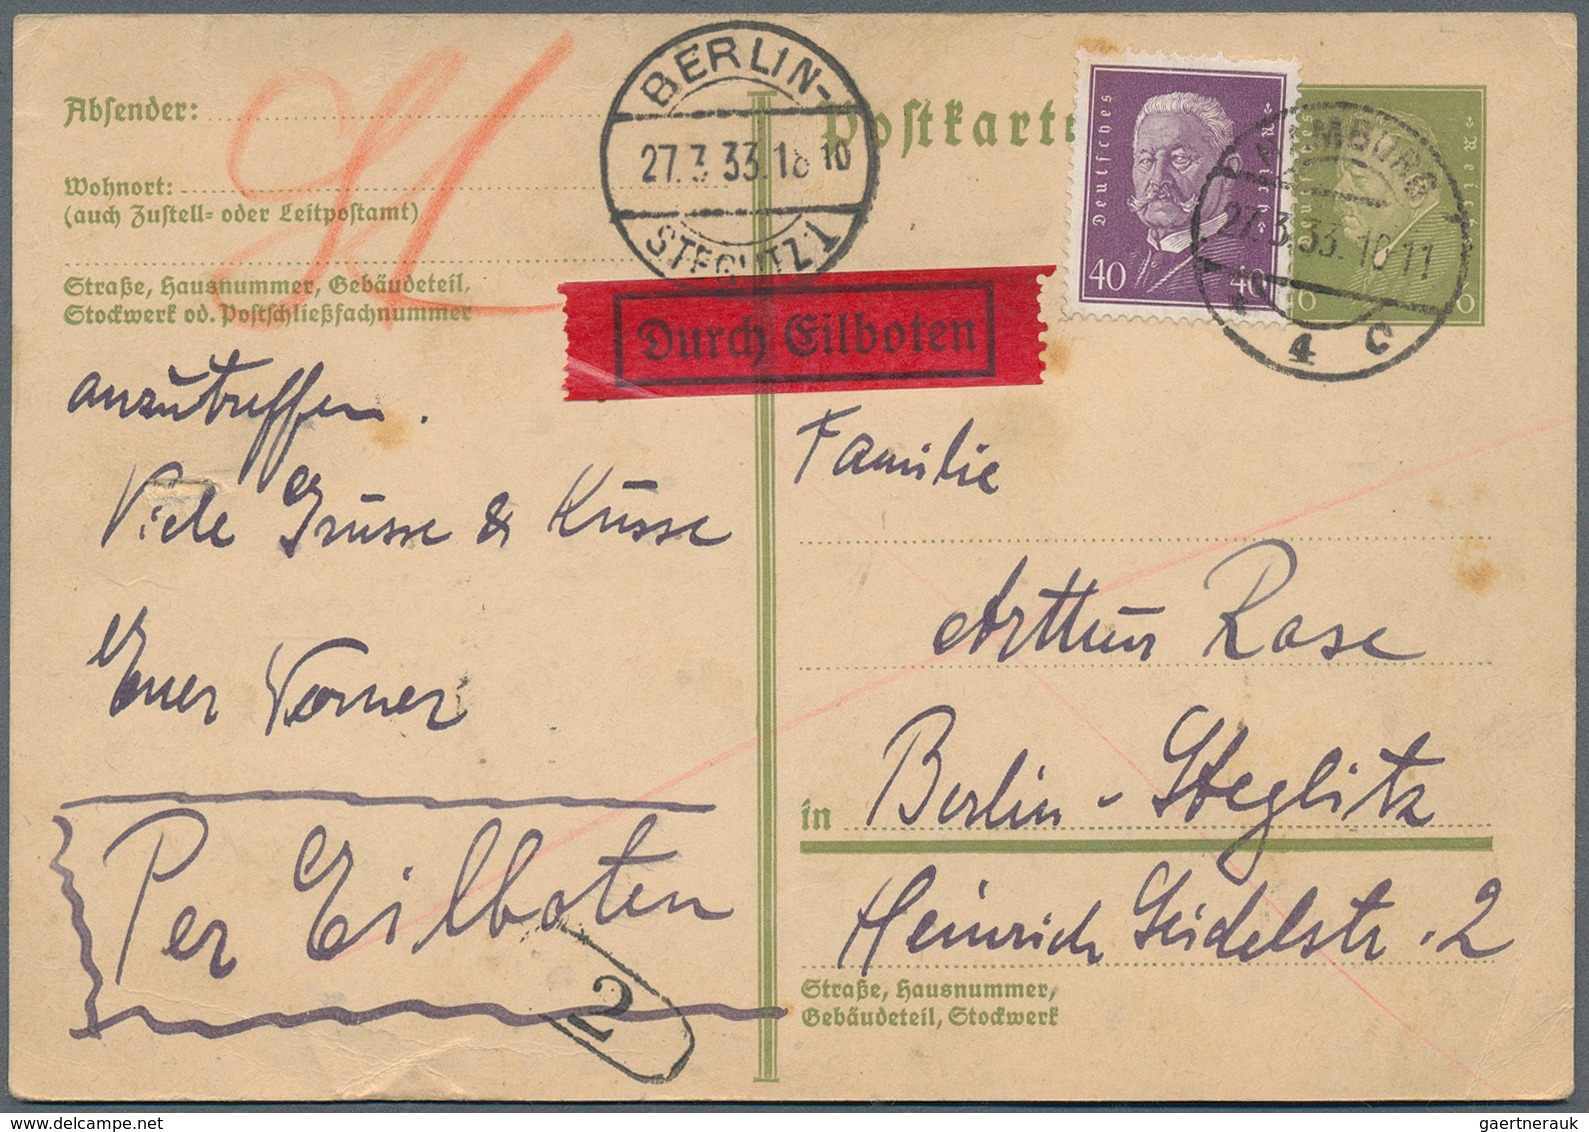 Absender:
Wohnort:
(auch Zustell- oder Leitpostamt)
Straße, Hausnummer, Gebäudeteil,
Stockwerk od. Postschließfachnummer
anzutreffen.
Viele Grüsse & Küsse
Euer Werner
Per Eilboten
2
BERLIN-
27.3.33.18 10
STEGLITZ 1
Durch Eilboten
Postkarte
Deutsches Reich
40 40
Deutsches Reich
6
HAMBURG
27.3.33.10 11
* 4 C
Familie
Arthur Rose
in Berlin-Steglitz
Heinrich Seidelstr. 2
Straße, Hausnummer,
Gebäudeteil, Stockwerk
gaertnerauk